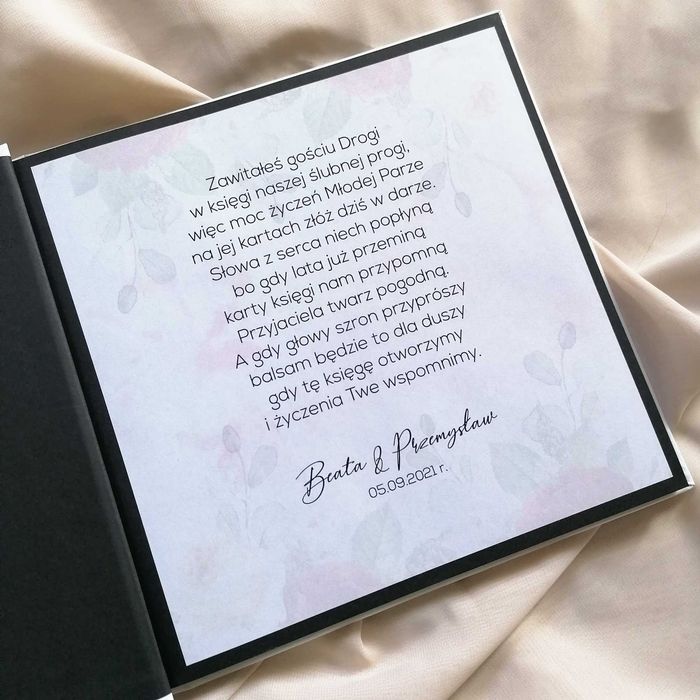 Zawitałeś gościu Drogi
w księgi naszej ślubnej progi,
więc moc życzeń Młodej Parze
na jej kartach złóż dziś w darze.
Słowa z serca niech popłyną
bo gdy lata już przeminą
karty księgi nam przypomną
Przyjaciela twarz pogodną.
A gdy głowy szron przyprószy
balsam będzie to dla duszy
gdy tę księgę otworzymy
i życzenia Twe wspomnimy.
Beata & Przemysław
05.09.2021 r.